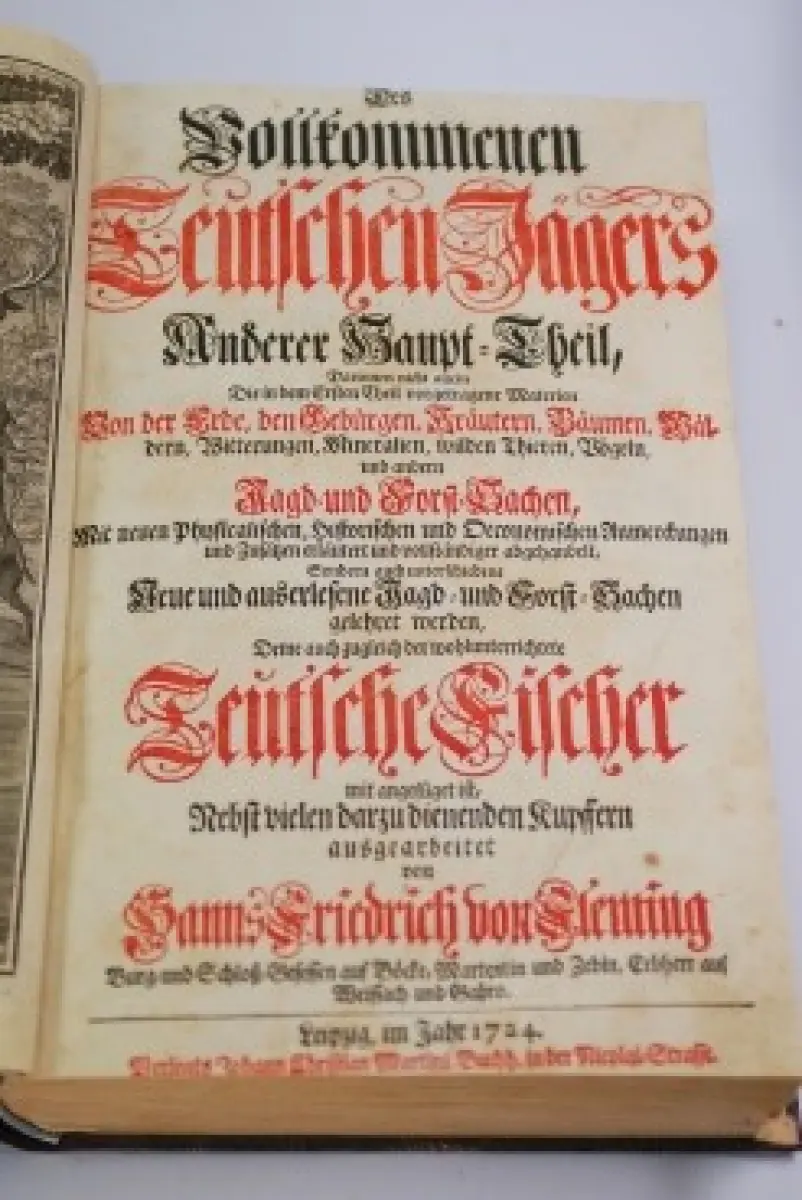 Des
Vollkommenen
Teutschen Jägers
Anderer Haupt-Theil,
Darinnen nicht allein
Die in dem Ersten Theil vorgetragene Materien
Von der Erde, den Gebürgen, Kräutern, Bäumen, Wäl-
dern, Witterungen, Mineralien, wilden Thieren, Vögeln,
und andern
Jagd- und Forst-Sachen,
Mit neuen Physicalischen, Historischen und Oeconomischen Anmerckungen
und Zusätzen erläutert und vollständiger abgehandelt,
Sondern auch unterschiedene
Neue und auserlesene Jagd- und Forst-Sachen
gelehret werden,
Deme auch zugleich der wohlunterrichtete
Teutsche Fischer
mit angefüget ist,
Nebst vielen darzu dienenden Kupffern
ausgearbeitet
von
Hanns Friedrich von Fleming
Burg- und Schloß-Gesessen auf Böcke, Martentin und Zebin, Erbherr auf
Weissach und Gahro.
Leipzig, im Jahr 1724.
Verlegts Johann Christian Martini, Buchh. in der Nicolai-Strasse.